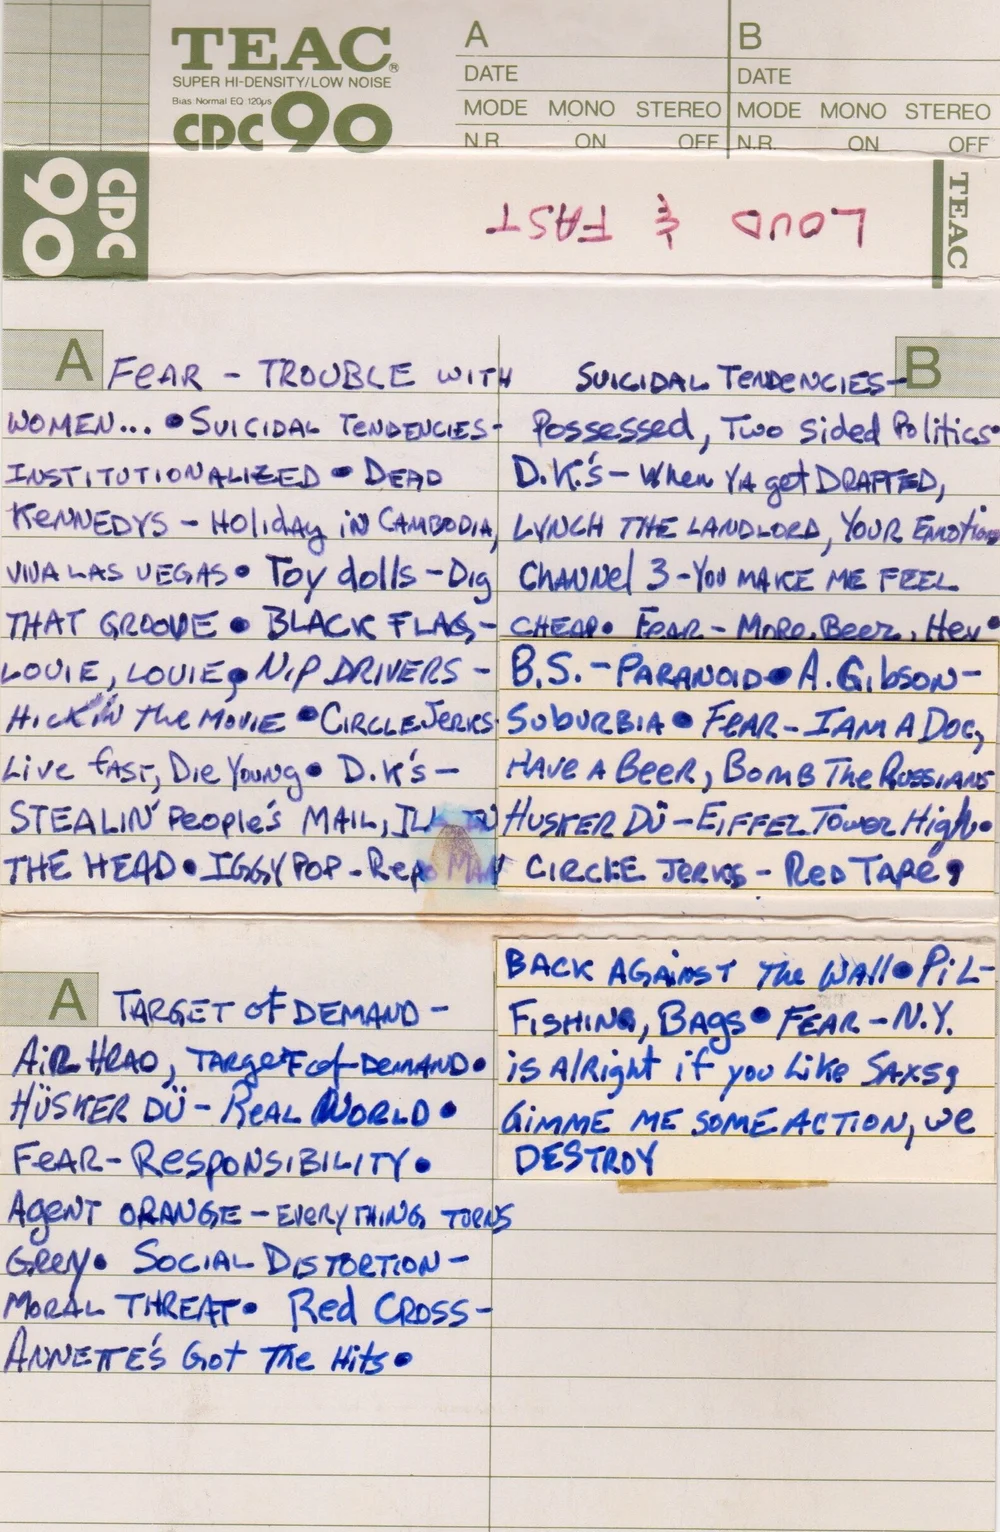 TEAC®
SUPER HI-DENSITY/LOW NOISE
Bias: Normal EQ 120µs
CDC 90
A
DATE
MODE MONO STEREO
N.R. ON OFF
B
DATE
MODE MONO STEREO
N.R. ON OFF
CDC 90
LOUD & FAST
TEAC
A
FEAR - TROUBLE WITH
WOMEN... • SUICIDAL TENDENCIES-
INSTITUTIONALIZED • DEAD
KENNEDYS - Holiday in CAMBODIA,
VIVA LAS VEGAS • Toy dolls - Dig
THAT GROOVE • BLACK FLAG -
LOUIE, LOUIE • NIP DRIVERS -
HICK IN The MOVIE • CIRCLE JERKS-
Live fast, Die Young • D.K's -
STEALIN' People's MAIL, ILL IN
THE HEAD • IGGY POP - Repo MAN
A
TARGET of DEMAND -
AIR HEAD, TARGET of DEMAND •
HÜSKER DÜ - REAL WORLD •
FEAR - RESPONSIBILITY •
AGENT ORANGE - EVERYTHING TURNS
Grey • SOCIAL DISTORTION -
MORAL THREAT • Red CROSS -
ANNETTE'S Got The Hits •
B
SUICIDAL TENDENCIES -
Possessed, Two sided Politics •
D.K.'s - When YA get DRAFTED,
LYNCH THE LANDLORD, YOUR Emotions
Channel 3 - YOU MAKE ME FEEL
CHEAP • FEAR - MORE BEER, Hey •
B.S. - PARANOID • A. Gibson -
SUBURBIA • FEAR - I AM A DOG,
HAVE A BEER, BOMB The RUSSIANS
HUSKER DÜ - EIFFEL TOWER High •
CIRCLE JERKS - RED TAPE,
BACK AGAINST The WALL • PiL -
FISHING, BAGS • FEAR - N.Y.
is Alright if you Like SAXS,
GIMME ME SOME ACTION, we
DESTROY